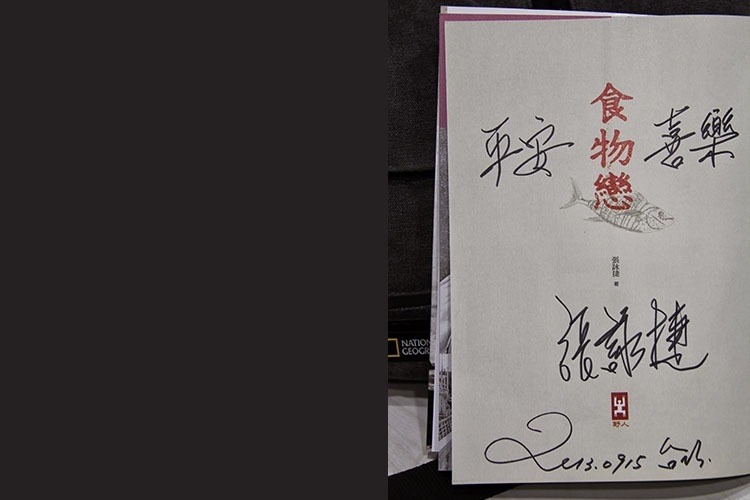 食物戀
平安 喜樂
張詠捷 著
張詠捷
野人
2013.0915 台北.
NATION
GEOGR